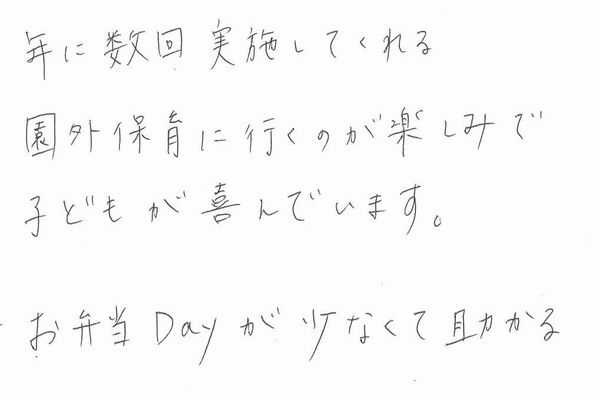 年に数回実施してくれる
園外保育に行くのが楽しみで
子どもが喜んでいます。
お弁当Dayが少なくて助かる